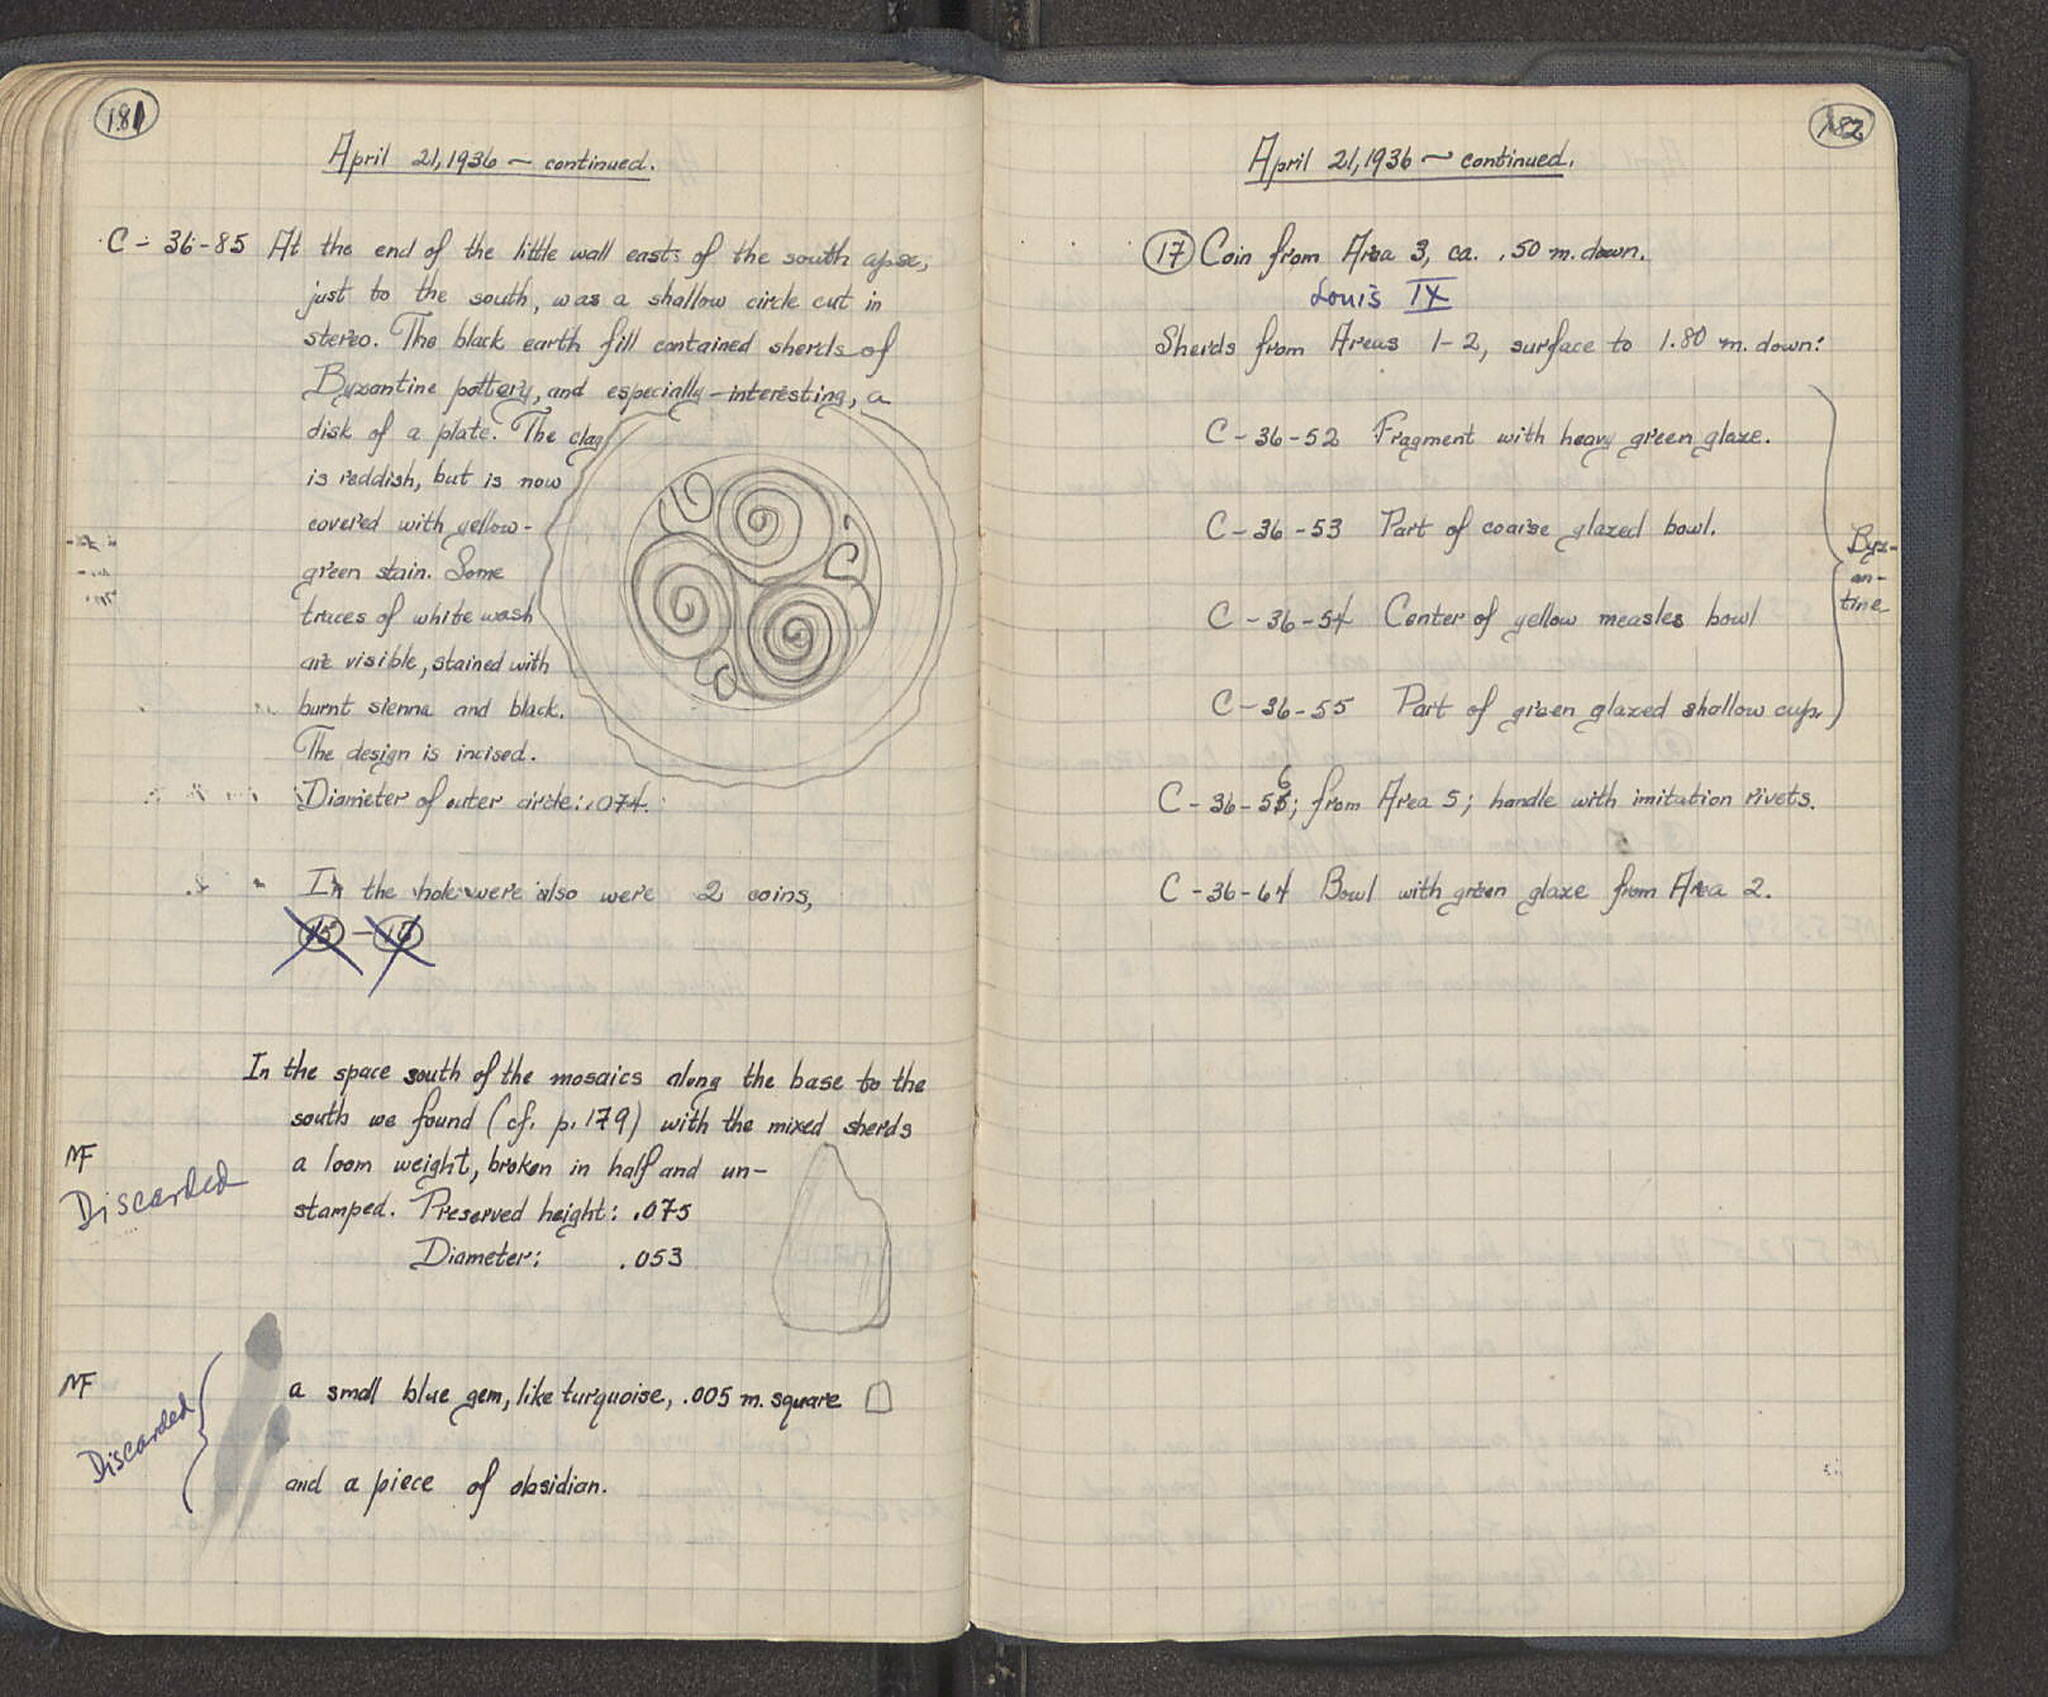 181
April 21, 1936 ~ continued.
C - 36 - 85 At the end of the little wall east of the south apse,
just to the south, was a shallow circle cut in
stereo. The black earth fill contained sherds of
Byzantine pottery, and especially interesting, a
disk of a plate. The clay
is reddish, but is now
covered with yellow-
green stain. Some
traces of white wash
are visible, stained with
burnt sienna and black.
The design is incised.
Diameter of outer circle: .074.
In the hole were also were 2 coins,
15 - 16
In the space south of the mosaics along the base to the
south we found (cf. p. 179) with the mixed sherds
NF a loom weight, broken in half and un-
Discarded
stamped. Preserved height: .075
Diameter: .053
NF a small blue gem, like turquoise, .005 m. square
Discarded
and a piece of obsidian.
182
April 21, 1936 ~ continued.
17 Coin from Area 3, ca. .50 m. down.
Louis IX
Sherds from Areas 1-2, surface to 1.80 m. down:
C - 36 - 52 Fragment with heavy green glaze.
C - 36 - 53 Part of coarse glazed bowl.
C - 36 - 54 Center of yellow measles bowl
C - 36 - 55 Part of green glazed shallow cup.
Byz-
an-
tine
C - 36 - 56; from Area 5; handle with imitation rivets.
C - 36 - 64 Bowl with green glaze from Area 2.